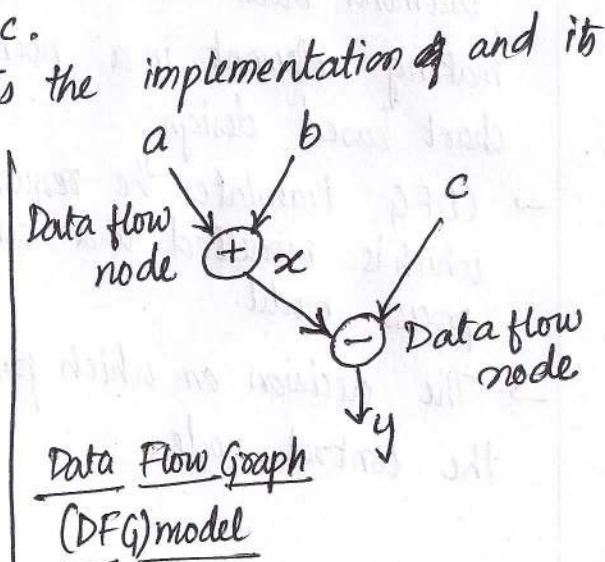 c.
s the implementation and its
a
b
c
Data flow
node
+
x
-
Data flow
node
y
Data Flow Graph
(DFG) model